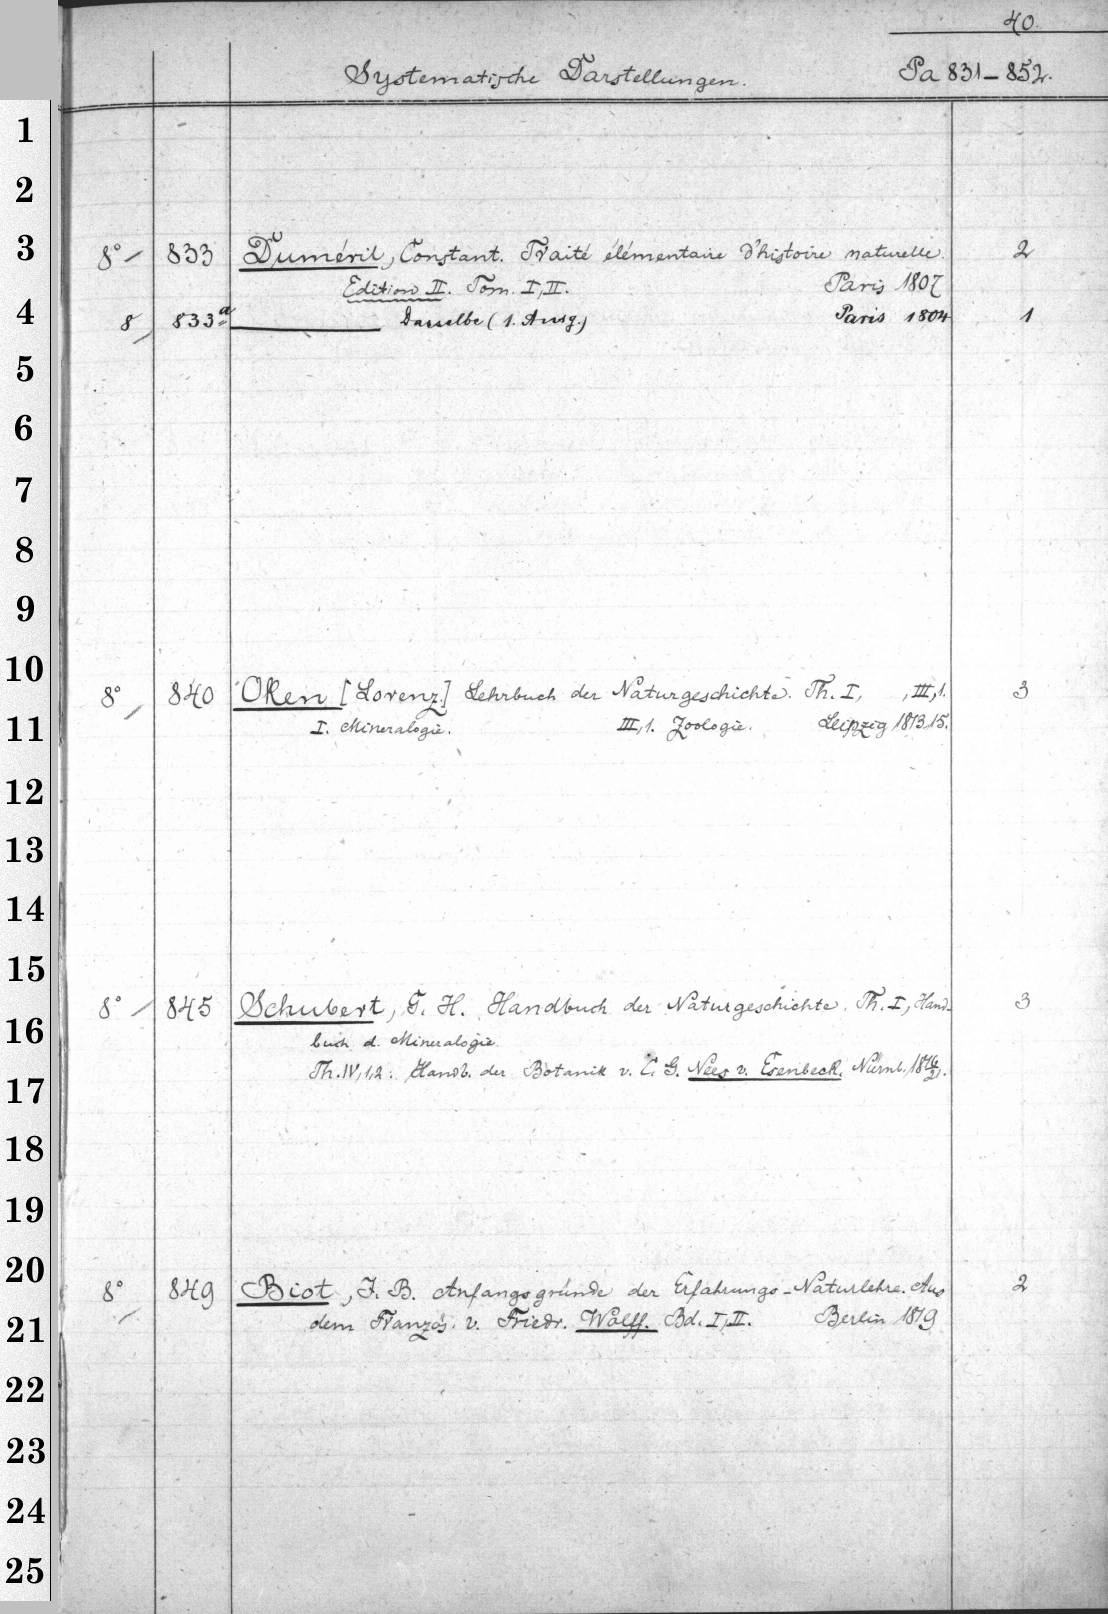 40.
Systematische Darstellungen. Pa 831–852.
1
2
3 8° 833 Duméril, Constant. Traité élémentaire d'histoire naturelle. 2
Edition II. Tom. I, II. Paris 1807
4 8 833a Dasselbe (1. Ausg.) Paris 1804 1
5
6
7
8
9
10 8° 840 Oken [Lorenz.] Lehrbuch der Naturgeschichte. Th. I, , III,1. 3
11 I. Mineralogie. III,1. Zoologie. Leipzig 1813.15.
12
13
14
15 8° 845 Schubert, G. H. Handbuch der Naturgeschichte. Th. I, Hand-
3
16 buch d. Mineralogie.
17 Th. IV, 1,2: Handb. der Botanik v. C. G. Nees v. Esenbeck. Nürnb.
18
19
20 8° 849 Biot, J. B. Anfangsgründe der Erfahrungs-Naturlehre. Aus 2
21 dem Französ. v. Friedr. Wolff. Bd. I, II. Berlin 1819
22
23
24
25